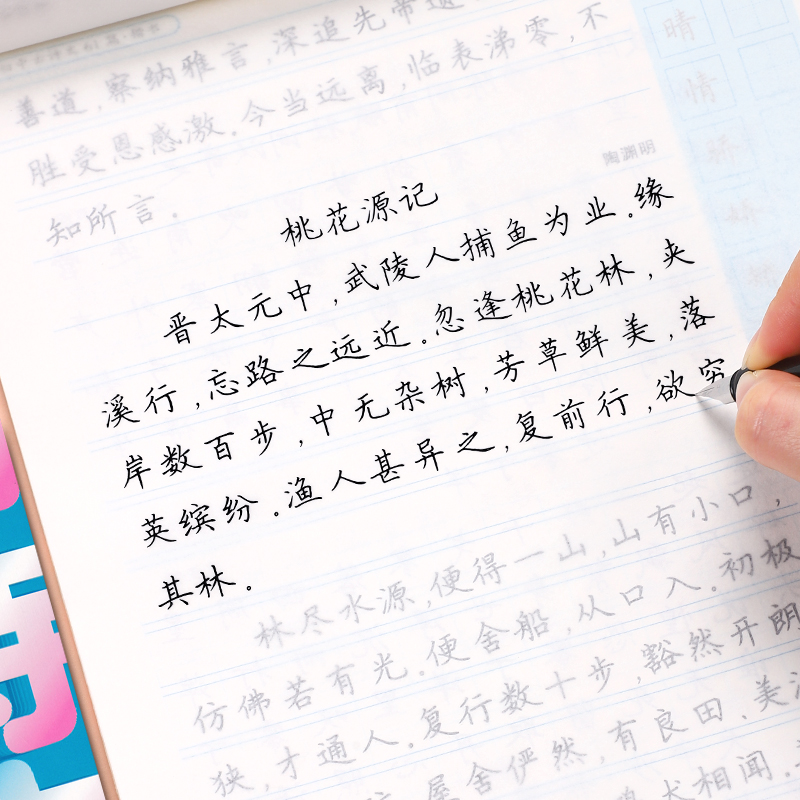 善道，察纳雅言，深追先帝遗
胜受恩感激。今当远离，临表涕零，不
知所言。
陶渊明
桃花源记
晋太元中，武陵人捕鱼为业。缘
溪行，忘路之远近。忽逢桃花林，夹
岸数百步，中无杂树，芳草鲜美，落
英缤纷。渔人甚异之，复前行，欲穷
其林。
林尽水源，便得一山，山有小口，
仿佛若有光。便舍船，从口入。初极
狭，才通人。复行数十步，豁然开朗
屋舍俨然，有良田、美
犬相闻。
晴
情